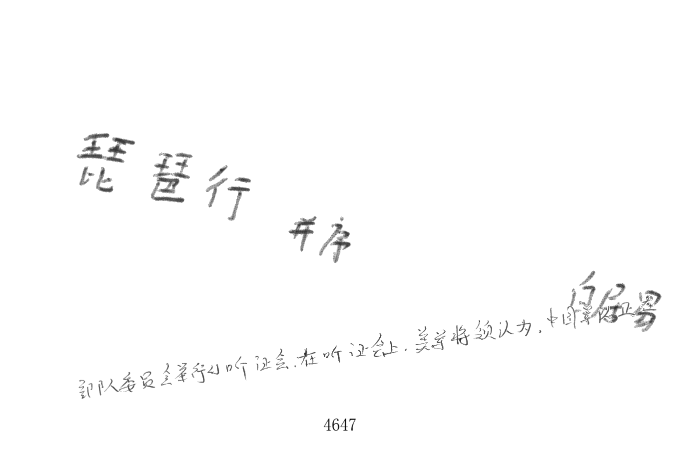 琵琶行
并序
白居易
部队委员会举行小听证会.在听证会上.美军将领认为,中国军
4647